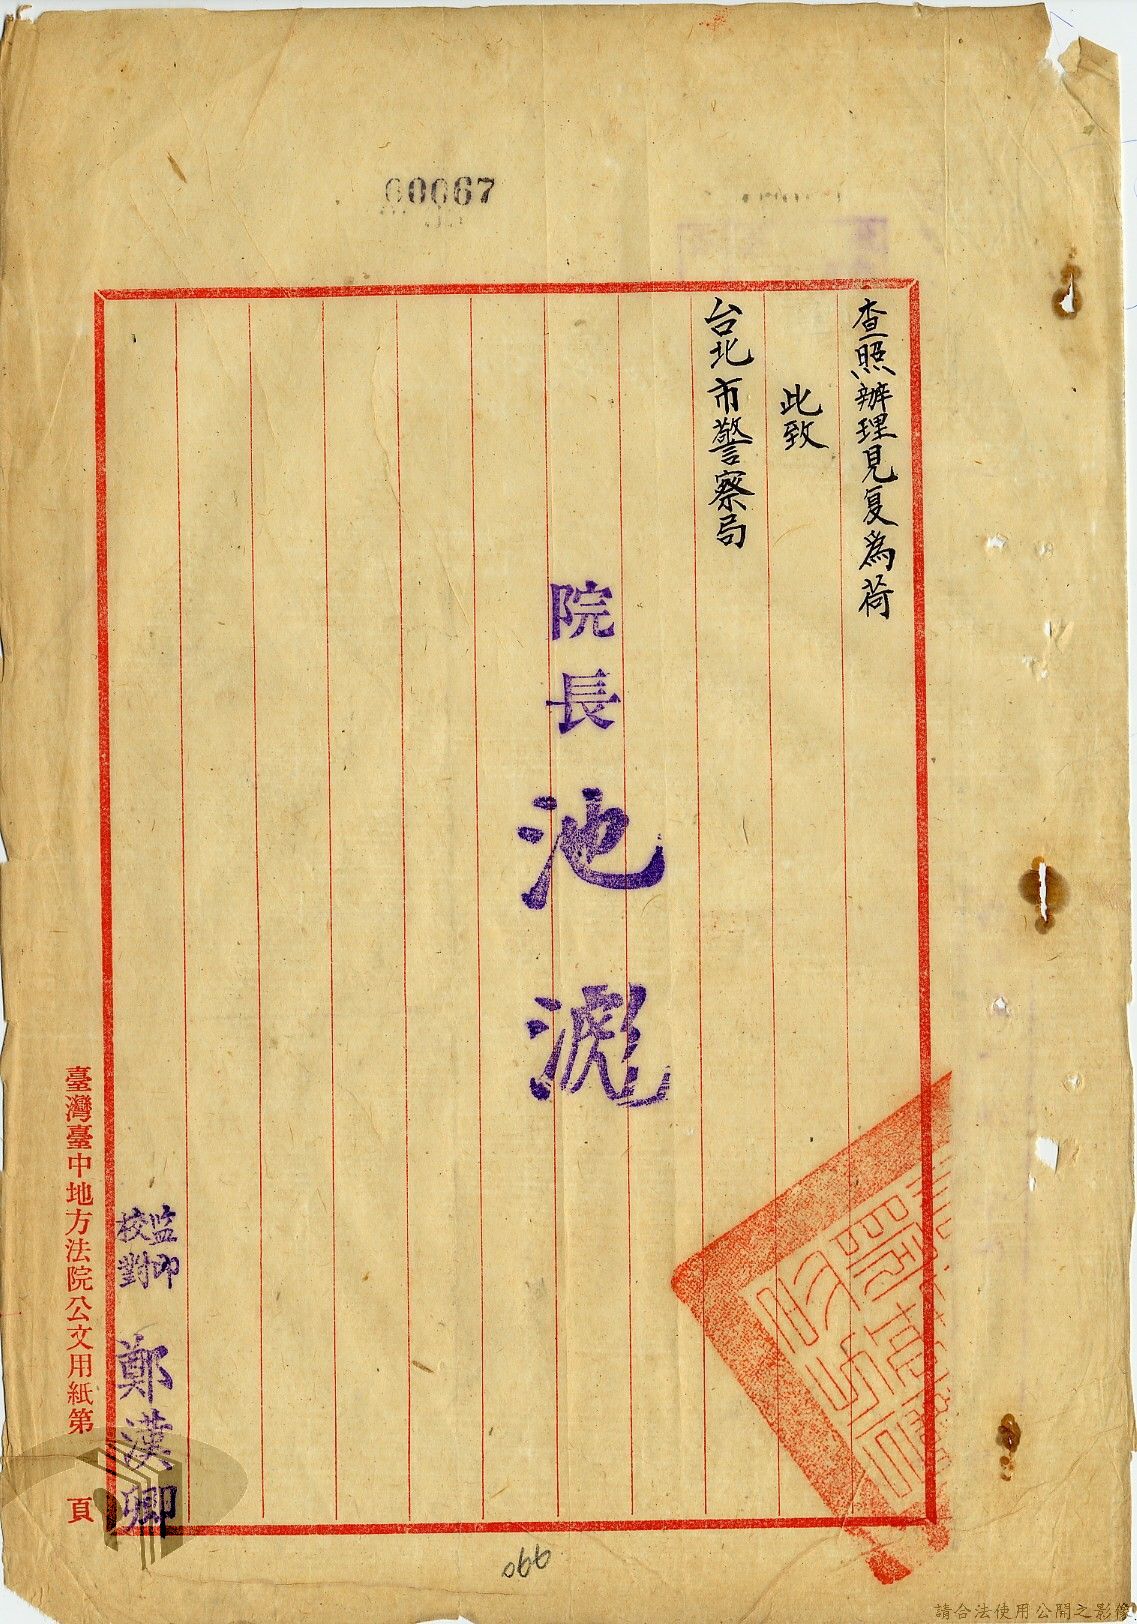 00067
查照辦理見复為荷
此致
台北市警察局
院長 池滮
監印
校對
鄭漢卿
臺灣臺中地方法院公文用紙第 頁
066
請合法使用公開之影像